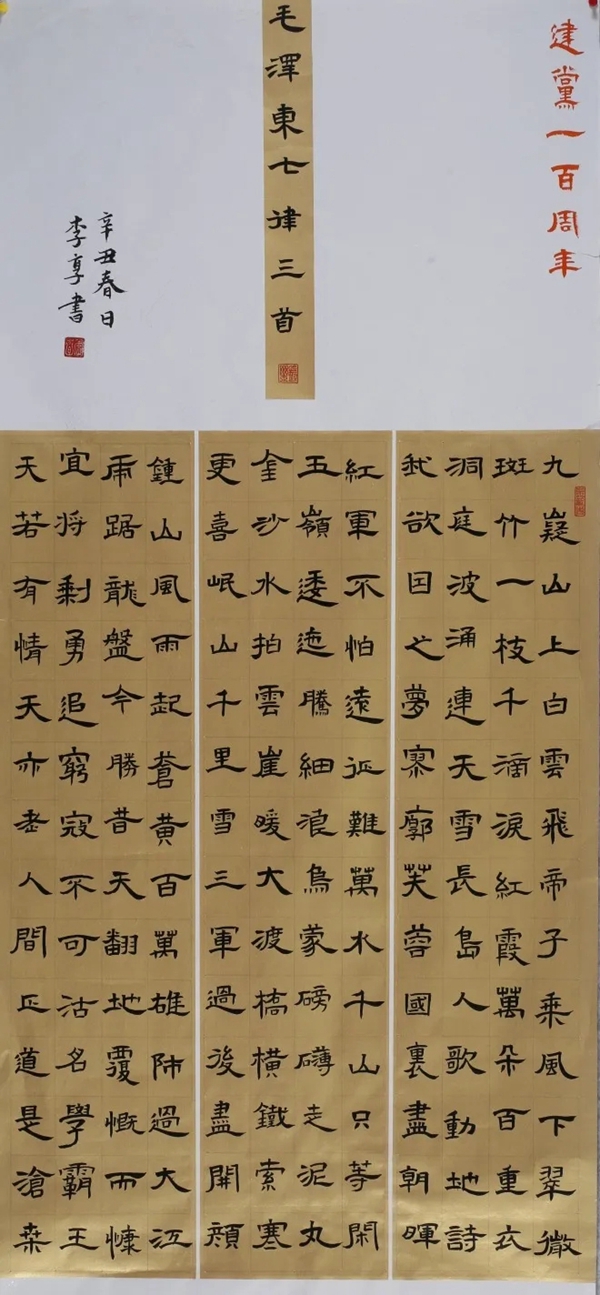 建黨一百周年
毛澤東七律三首
辛丑春日
李享書
九嶷山上白雲飛帝子乘風下翠微
斑竹一枝千滴淚紅霞萬朵百重衣
洞庭波涌連天雪長島人歌動地詩
我欲因之夢寥廓芙蓉國裏盡朝暉
紅軍不怕遠征難萬水千山只等閑
五嶺逶迤騰細浪烏蒙磅礴走泥丸
金沙水拍雲崖暖大渡橋橫鐵索寒
更喜岷山千里雪三軍過後盡開顏
鍾山風雨起蒼黃百萬雄師過大江
虎踞龍盤今勝昔天翻地覆慨而慷
宜將剩勇追窮寇不可沽名學霸王
天若有情天亦老人間正道是滄桑